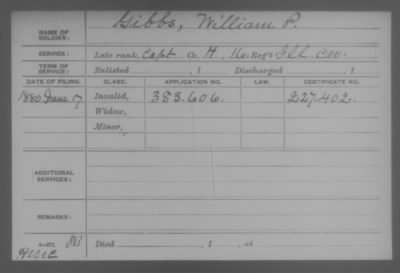 Gibbs, William P.
NAME OF SOLDIER:
SERVICE: Late rank, Capt Co. H, 16 Reg't Ill Cav.
TERM OF SERVICE: Enlisted , 1 Discharged , 1
DATE OF FILING. CLASS. APPLICATION NO. LAW. CERTIFICATE NO.
1880 June 17 Invalid, 383.606. 227.402.
Widow,
Minor,
ADDITIONAL SERVICES:
REMARKS:
Died , 1 , at